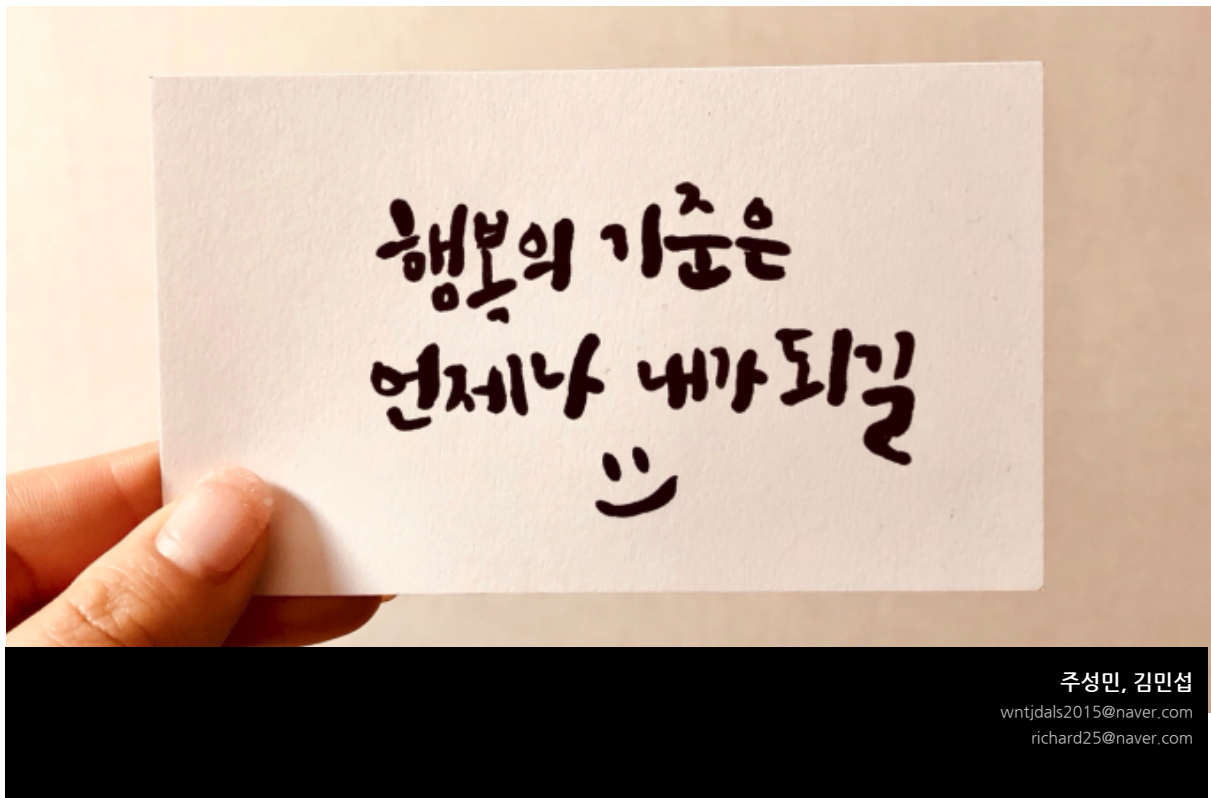 행복의 기준은
언제나 내가 되길
주성민, 김민섭
wntjdals2015@naver.com
richard25@naver.com